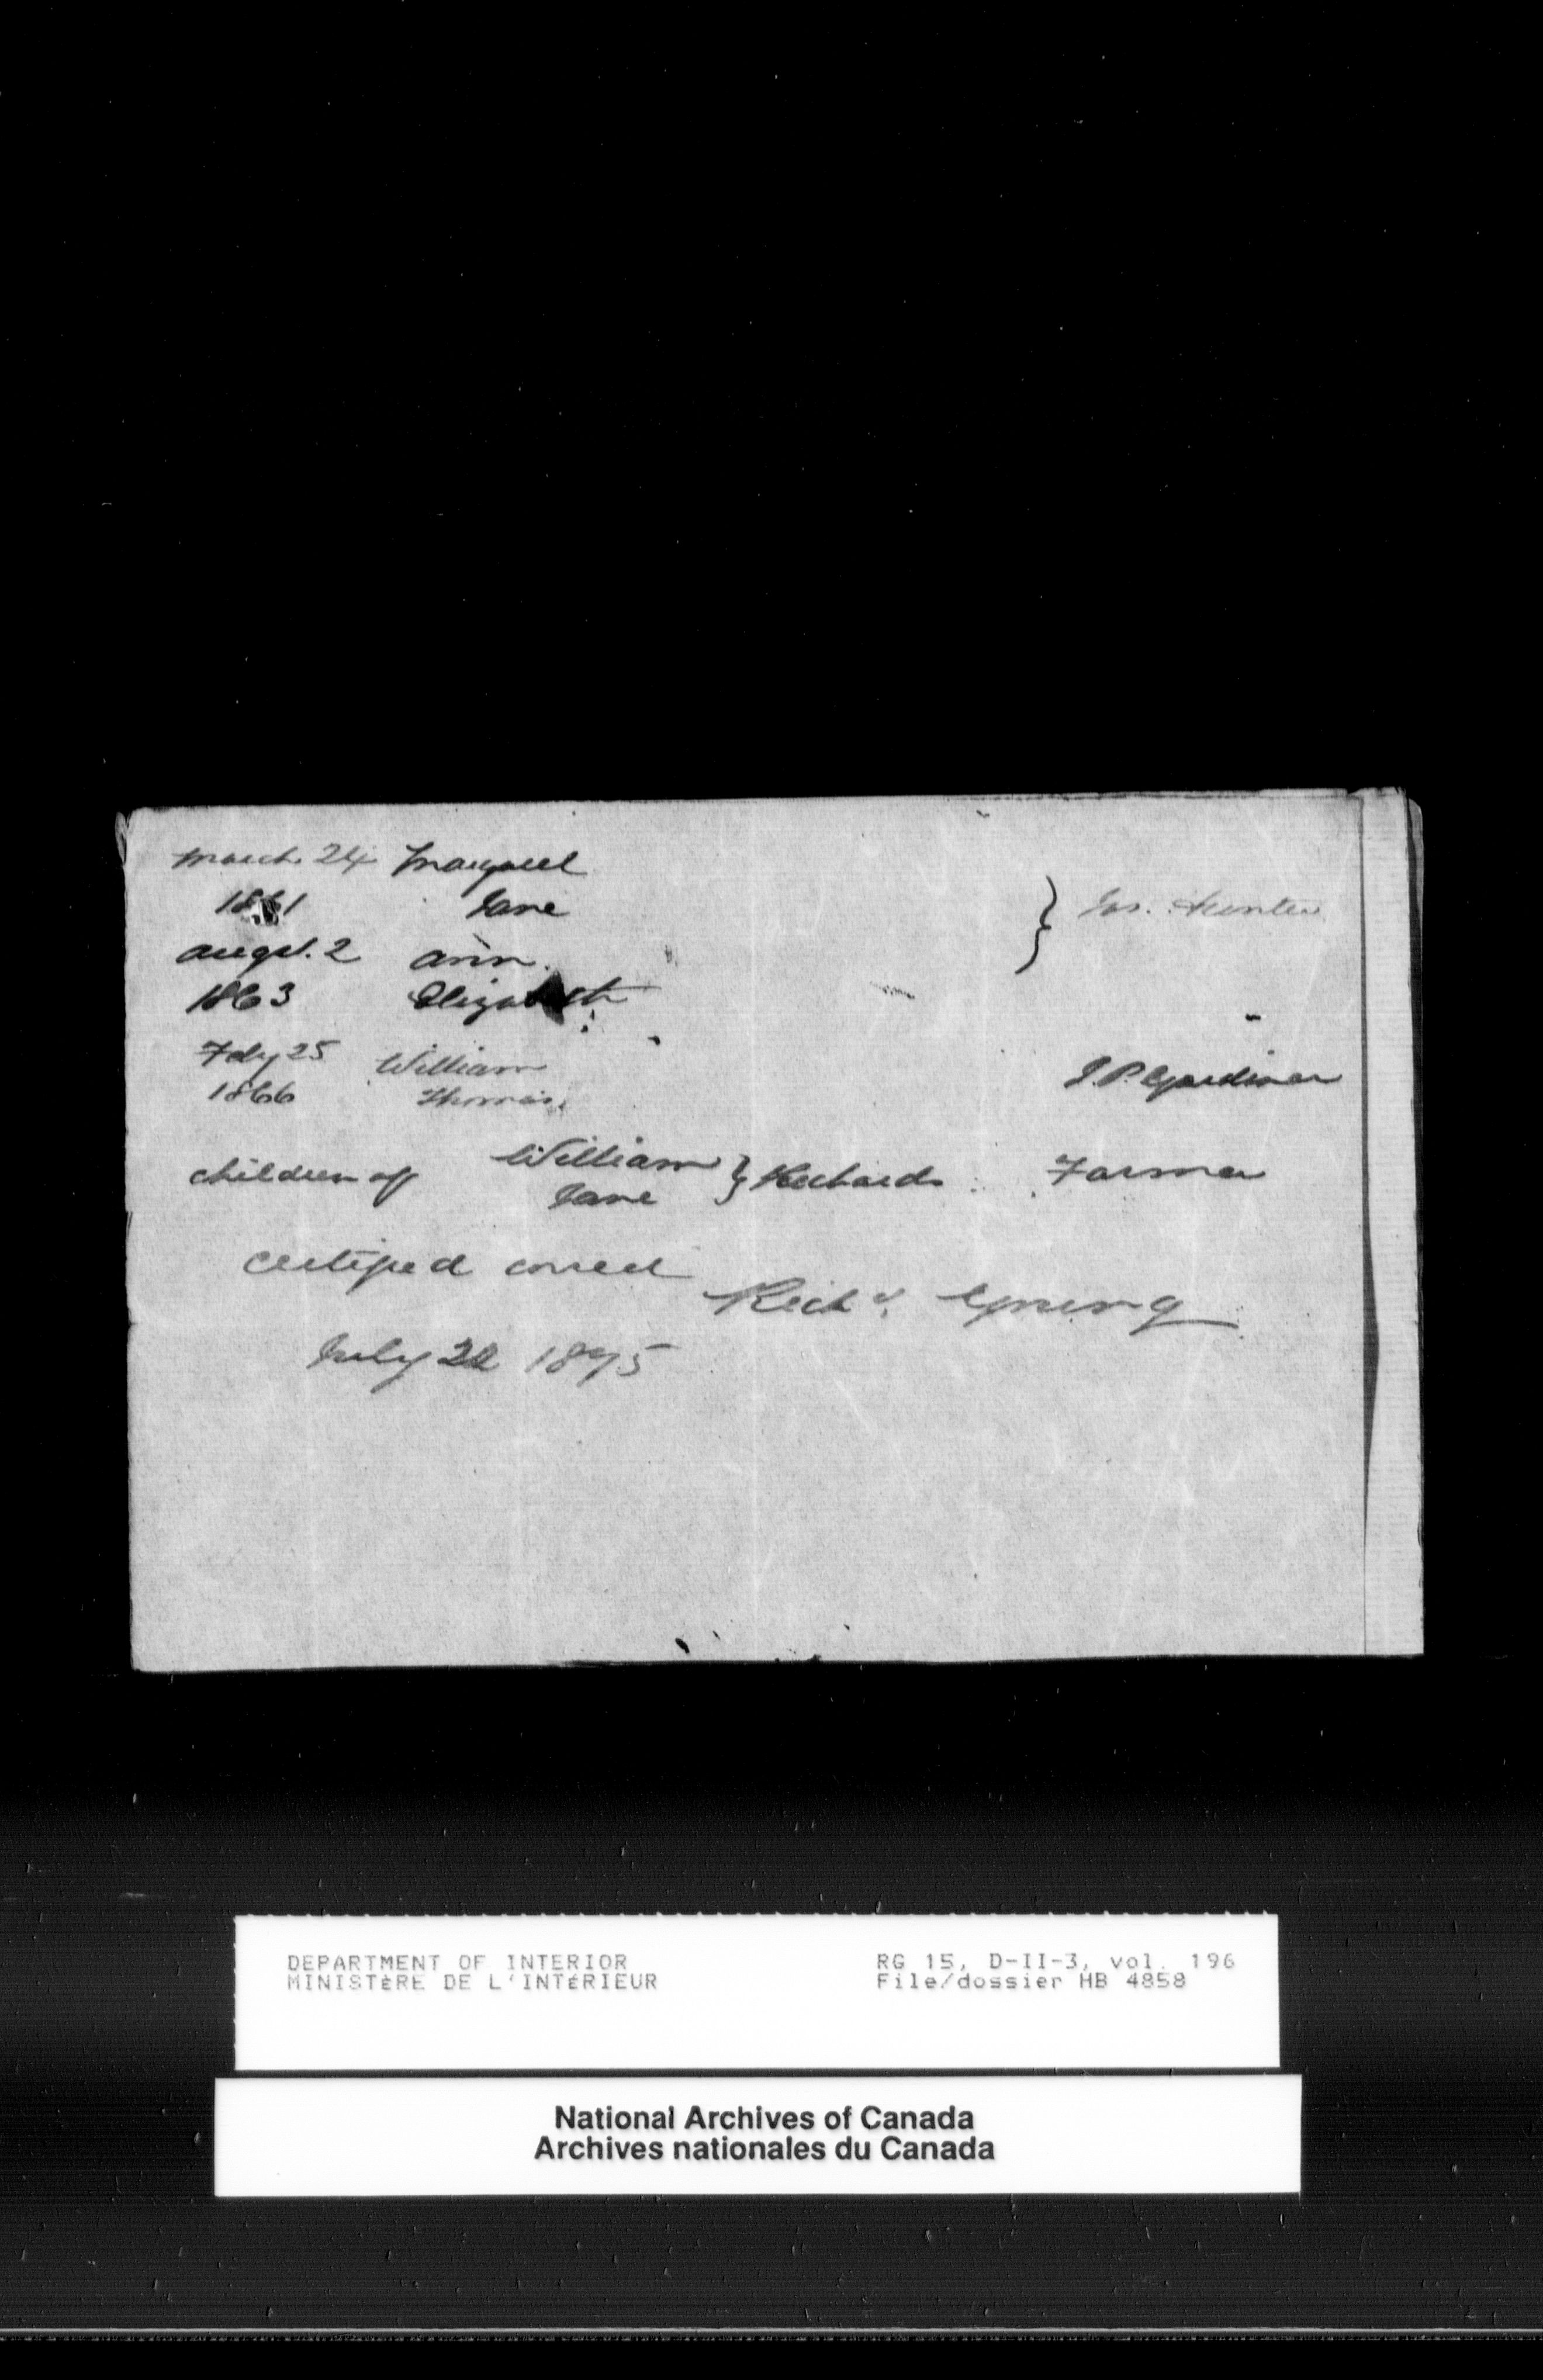 March 24 Margaret
1861 Jane
} Jas. Hunter
Augst. 2 Ann.
1863 Elizabeth
Feby 25 William
1866 Thomas.
J.P. Gardiner
children of William } Richards. Farmer
Jane
Certified correct
Richd. Young
July 22 1875
DEPARTMENT OF INTERIOR
MINISTÈRE DE L'INTÉRIEUR
RG 15, D-II-3, vol. 196
File/dossier HB 4858
National Archives of Canada
Archives nationales du Canada